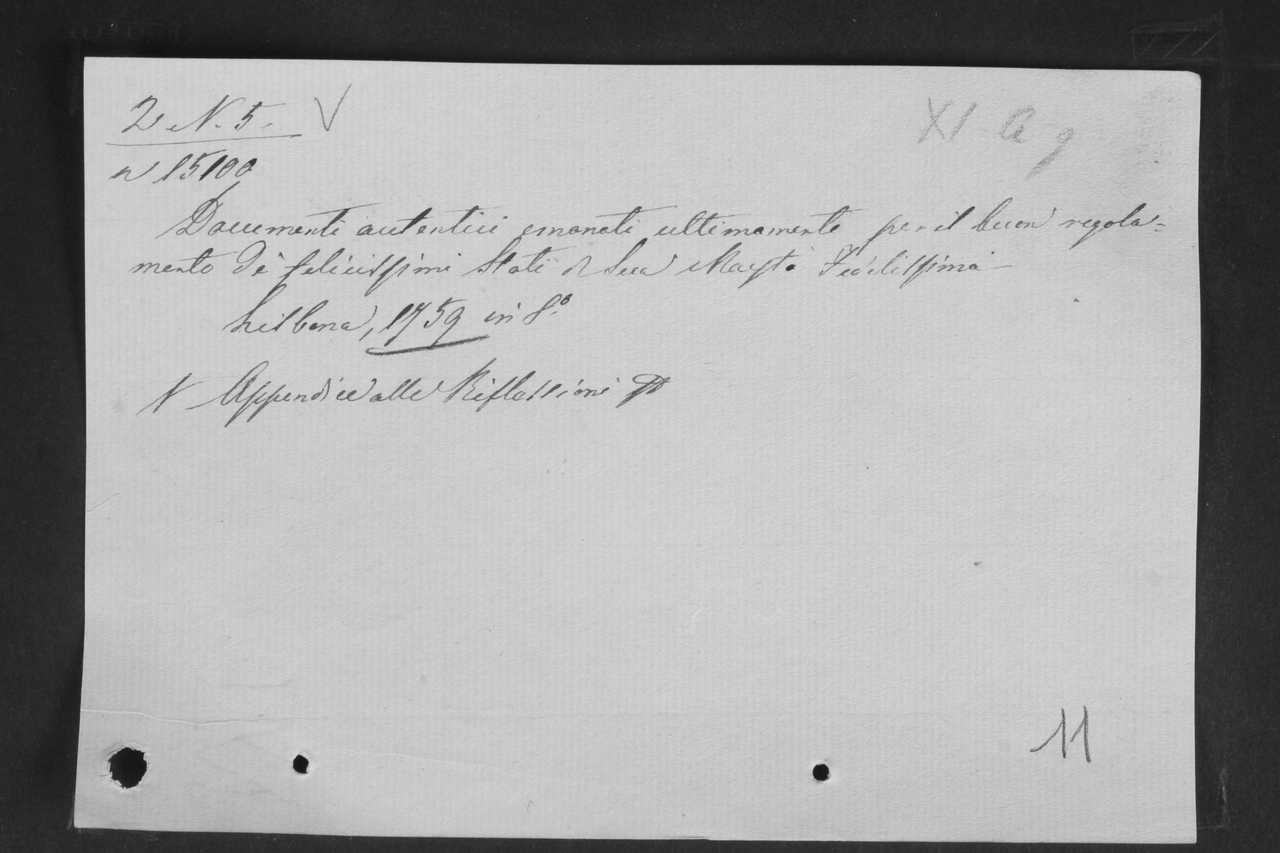 2 N. 5. V
XI a g
n 15100
Documenti autentici emanati ultimamente per il buon regola=
mento de' felicissimi Stati di Sua Maestà Fedelissima
Lisbona, 1759 in 8.º
V Appendice alle Riflessioni
11